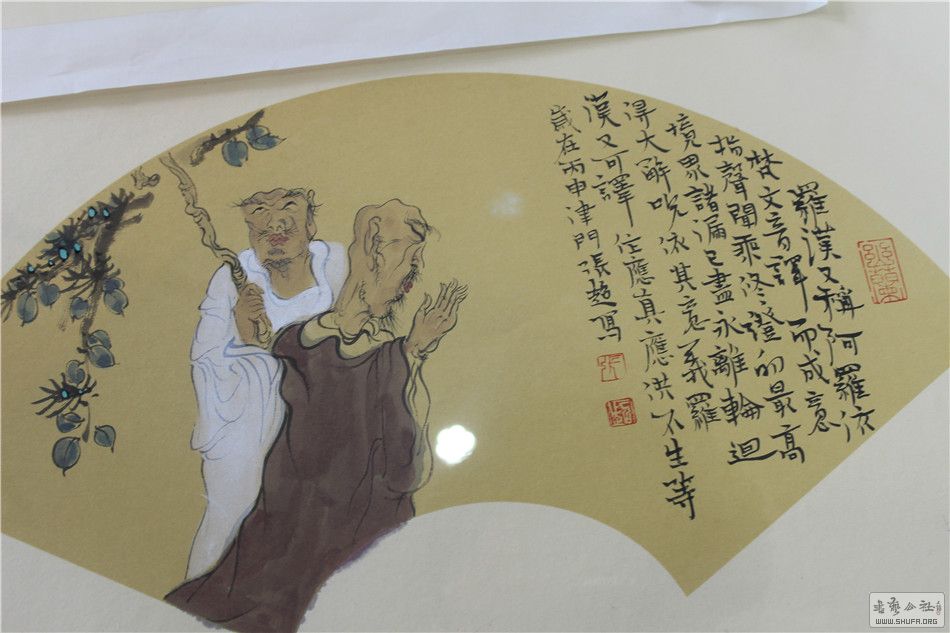 羅漢又稱阿羅依
梵文音譯而成意
指聲聞乘修證的最高
境界諸漏已盡永離輪迴
得大解脫依其意義羅
漢又可譯住應真應洪不生等
歲在丙申津門張超寫
WWW.SHUFA.ORG